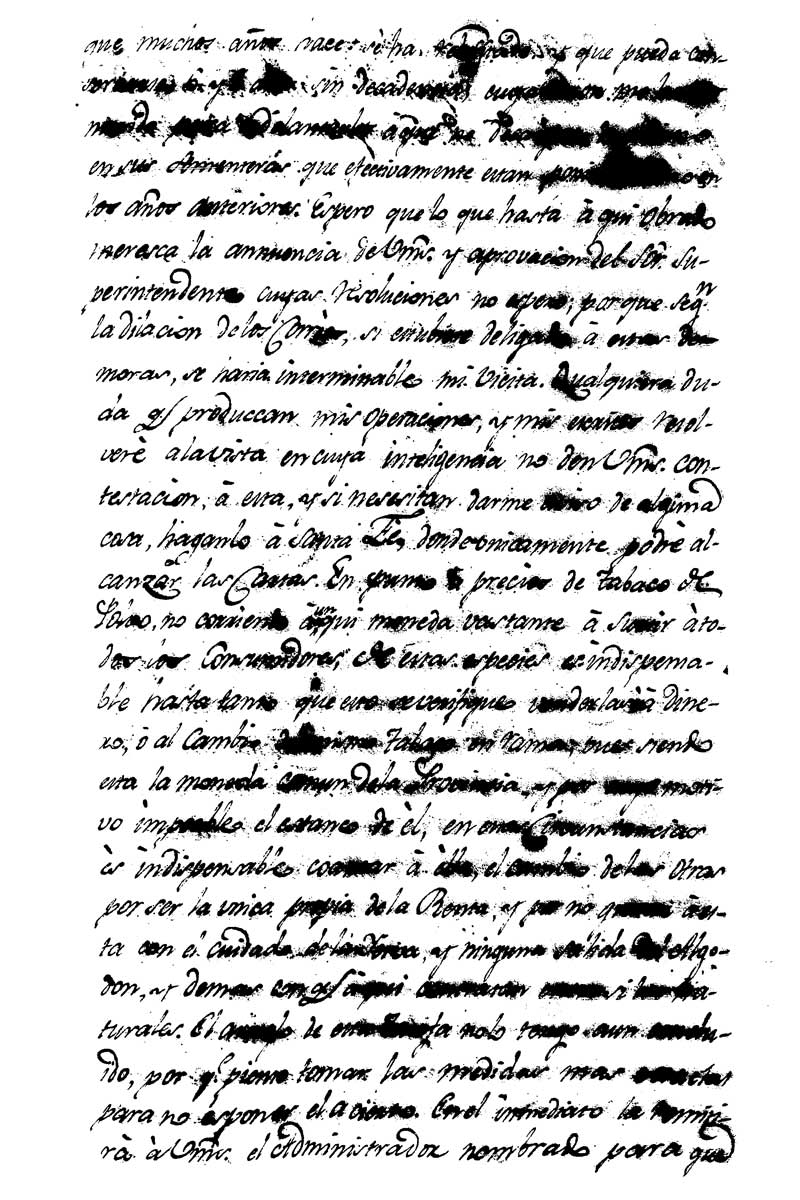 que muchos años hace se ha, y que pueda con-
sin decadencia, cuya
adelantarla à que se
en sus Amenteras que efectivamente estan
los años anteriores. Espero que lo que hasta à qui obrado
meresca la annuencia de Vms. y aprovacion del Sôr. Su-
perintendente cuyas resoluciones no espero, porque segn
la dilacion de los Correos, si estubiese deligado à estas de-
moras, se haria interminable mi Vicita. Qualquiera du-
da qe produccan mis operaciones, y mis escritos resol-
verè a la vista en cuya inteligencia no den Vms. con-
testacion, à esta, y si necesitan darme aviso de alguna
cosa, haganlo à Santa Fè, donde onicamente podrè al-
canzar las Cartas. En punto à precios de tabaco de
Polvo, no corriendo à un qui moneda vastante à surtir àto-
dos los Consumidores, de estas especies es indispensa-
ble hasta tanto que esto se verifique venderlas à Dine-
ro, ò al Cambio del mismo Tabaco en rama, pues siendo
esta la moneda comun de la Provincia, y por cuyo moti-
vo imposible el estanco de èl, en estas Circunstancias
ès indispensable à ella, el cambio de las otras
por ser la unica propia de la Renta, y por no àus-
ta con el cuidado de la Yerva, y ninguna salida del Algo-
don, y demas con qe àqui contratan entre si los Na-
turales. El arreglo de esta no lo tengo aun conclu-
ido, por qe pienso tomar las medidas mas exactas
para no esponer el acierto. En el inmediato la remiti-
rà à Vms. el Administrador nombrado para que